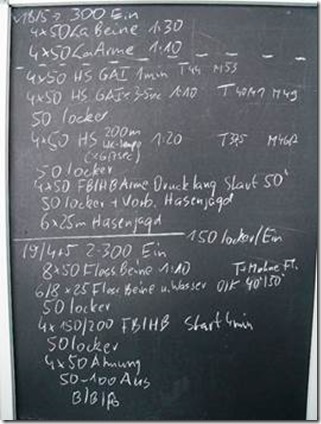 18/5 300 Ein
4x50 Beine 1:30
4x50 Arme 1:10
4x50 HS GAI 1min T44 M53
4x50 HS GAI 3-5sec 1:10
50 locker
4x50 HS 200m 1:20
50 locker
4x50 FB/HB Arme Druck lang Start 50"
50 locker + Vorb. Hasenjagd
6x25m Hasenjagd
150 locker/Ein
19/4+5 2-300 Ein
8x50 Floss Beine 1:10 T=Mohne Fl.
6/8x25 Floss Beine u. Wasser 40"/50"
50 locker
4x150/200 FB/HB Start 4min
50 locker
4x50 Atmung
50-100 Aus